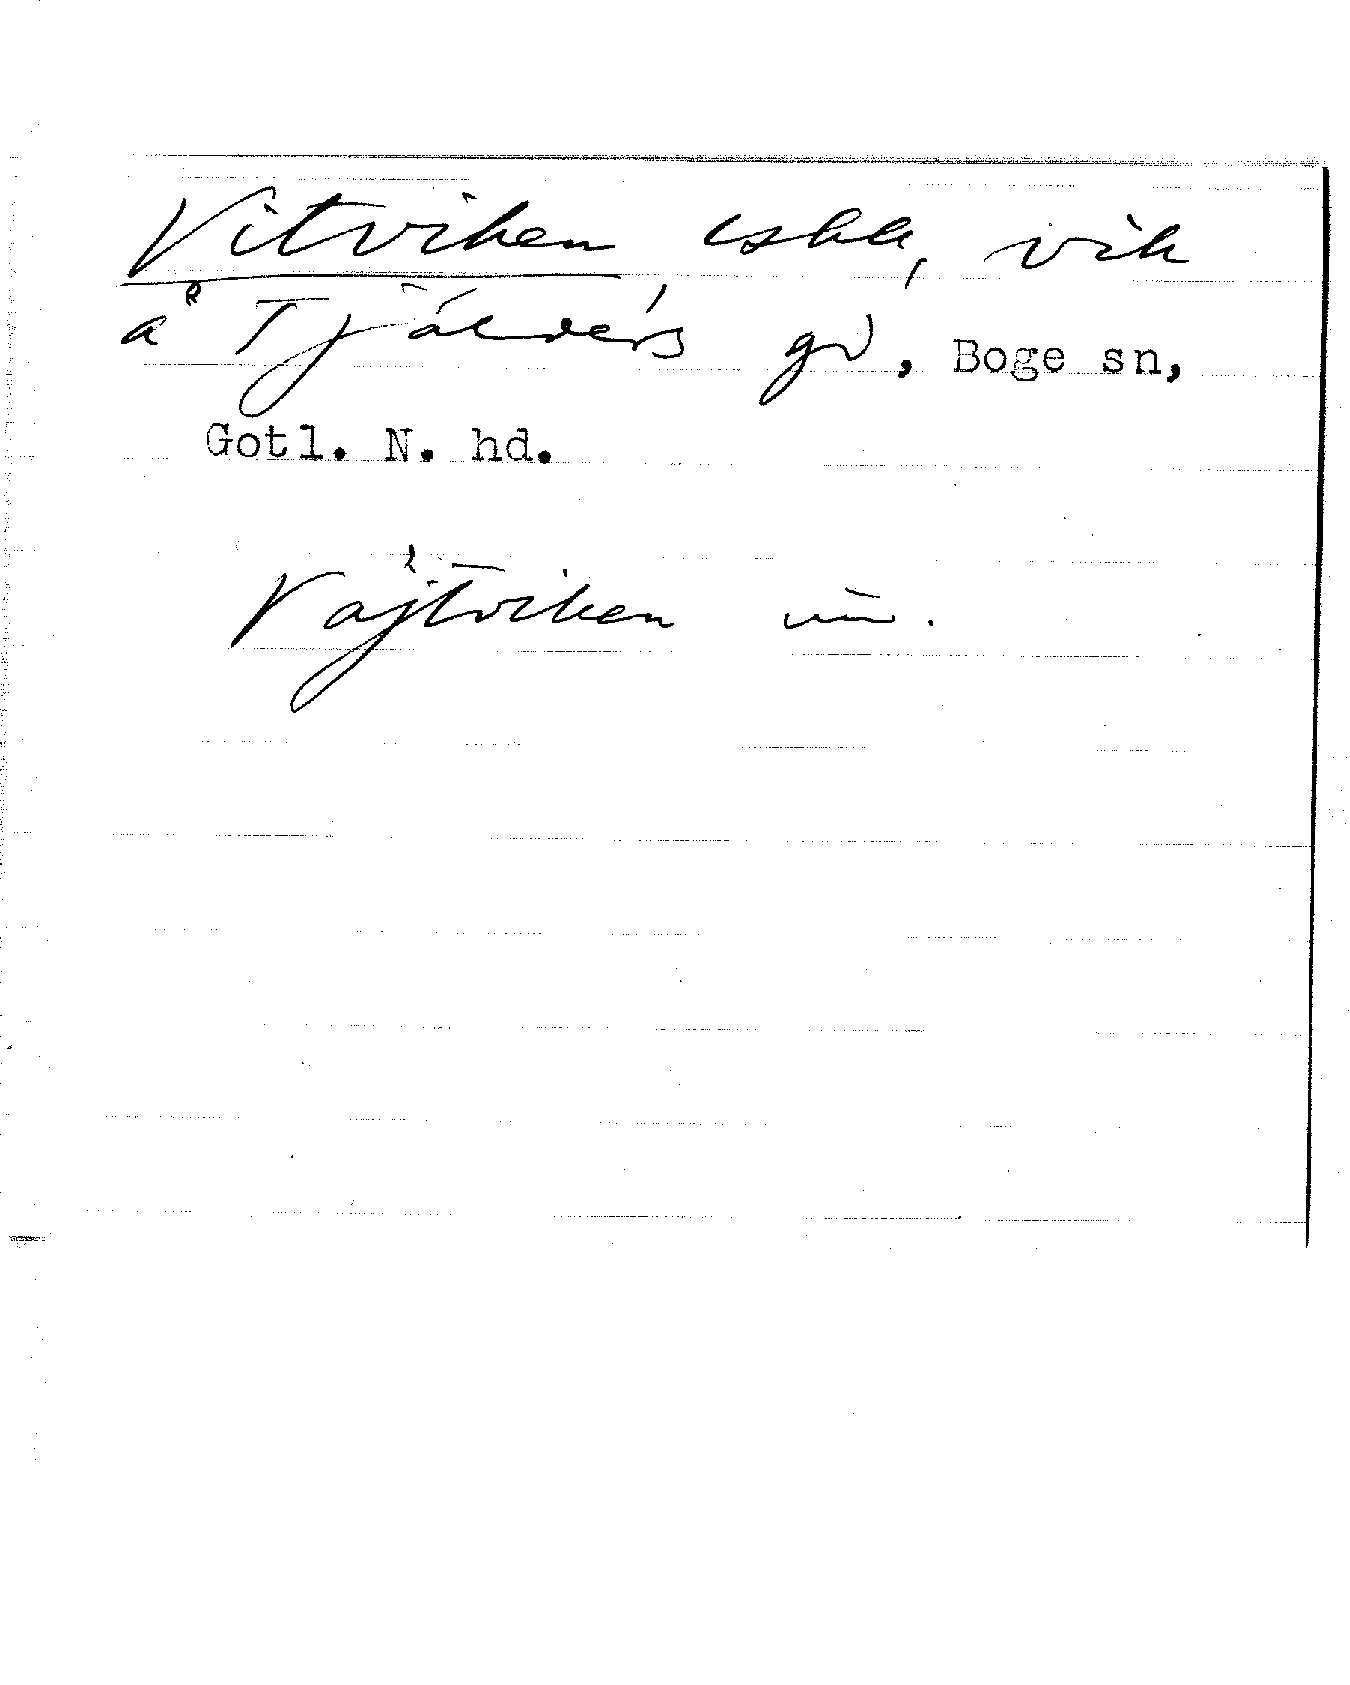 Vitviken eskk, vik
å Tjälvers gd, Boge sn,
Gotl. N. hd.
Vajtviken